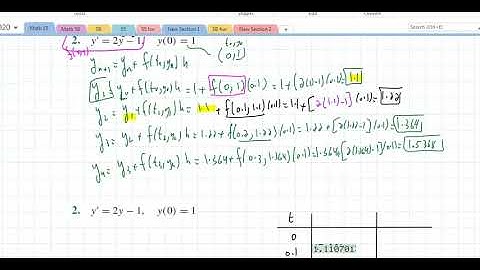 Math 10
58
55
New Section 1
New Section 2
2. y' = 2y - 1 y(0) = 1 t₀, y₀
f(t,y) (0,1)
yₙ₊₁ = yₙ + f(tₙ,yₙ) h
y₁ = y₀ + f(t₀,y₀) h = 1 + f(0,1)(0.1) = 1 + (2(1)-1)(0.1) = 1.1
y₂ = y₁ + f(t₁,y₁) h = 1.1 + f(0.1,1.1)(0.1) = 1.1 + [2(1.1)-1](0.1) = 1.22
y₃ = y₂ + f(t₂,y₂) h = 1.22 + f(0.2,1.22)(0.1) = 1.22 + [2(1.22)-1](0.1) = 1.364
y₄ = y₃ + f(t₃,y₃) h = 1.364 + f(0.3,1.364)(0.1) = 1.364 [2(1.364)-1](0.1) = 1.5368
2. y' = 2y - 1, y(0) = 1
t
0
0.1 1.110701